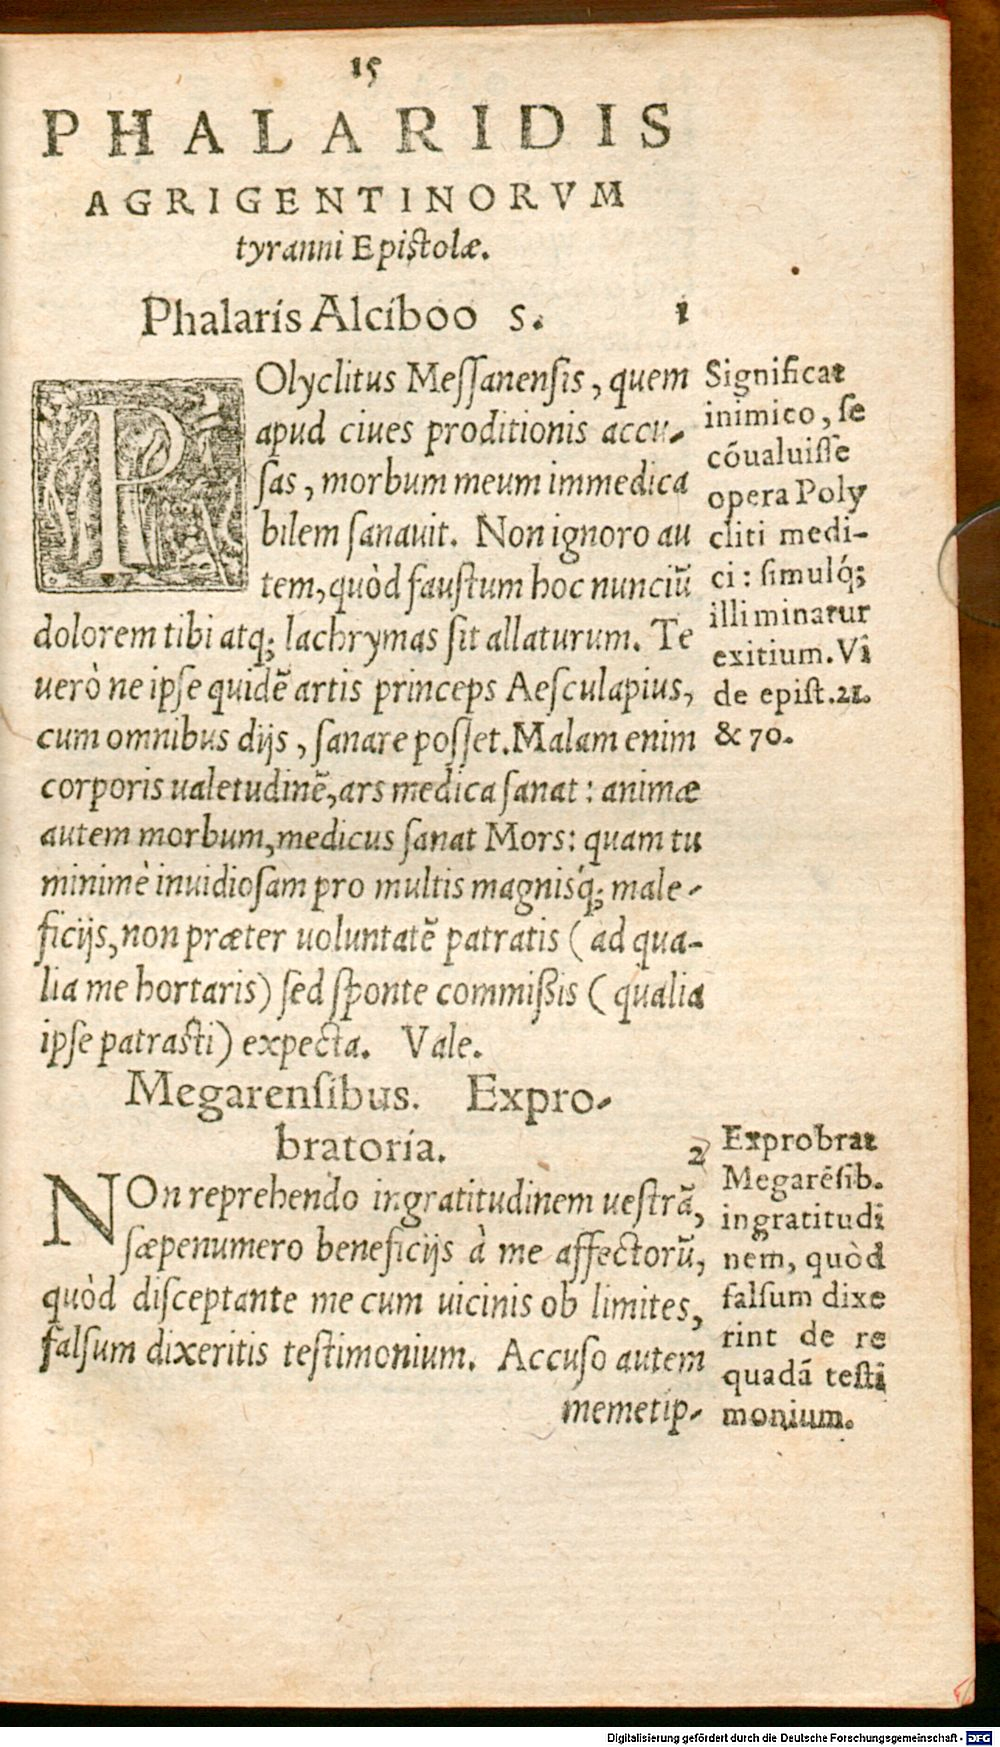 15
PHALARIDIS
AGRIGENTINORVM
tyranni Epistolæ.
Phalaris Alciboo s. 1
POlyclitus Meſſanenſis, quem
apud ciues proditionis accu-
ſas, morbum meum immedica
bilem ſanauit. Non ignoro au
tem, quòd fauſtum hoc nunciũ
dolorem tibi atq; lachrymas ſit allaturum. Te
uerò ne ipſe quidẽ artis princeps Aeſculapius,
cum omnibus dijs, ſanare poſſet. Malam enim
corporis ualetudinẽ, ars medica ſanat: animæ
autem morbum, medicus ſanat Mors: quam tu
minimè inuidioſam pro multis magnisq́; male-
ficijs, non præter uoluntatẽ patratis (ad qua-
lia me hortaris) ſed ſponte commißis (qualia
ipſe patraſti) expecta. Vale.
Significat
inimico, ſe
cõualuiſſe
opera Poly
cliti medi-
ci: ſimulq́;
illi minatur
exitium. Vi
de epiſt. 21.
& 70.
Megarenſibus. Expro-
bratoria. 2
NOn reprehendo ingratitudinem ueſtrã,
ſæpenumero beneficijs à me affectorũ,
quòd diſceptante me cum uicinis ob limites,
falſum dixeritis teſtimonium. Accuſo autem
memetip-
Exprobrat
Megarẽſib.
ingratitudi
nem, quòd
falſum dixe
rint de re
quadã teſti
monium.
Digitalisierung gefördert durch die Deutsche Forschungsgemeinschaft - DFG